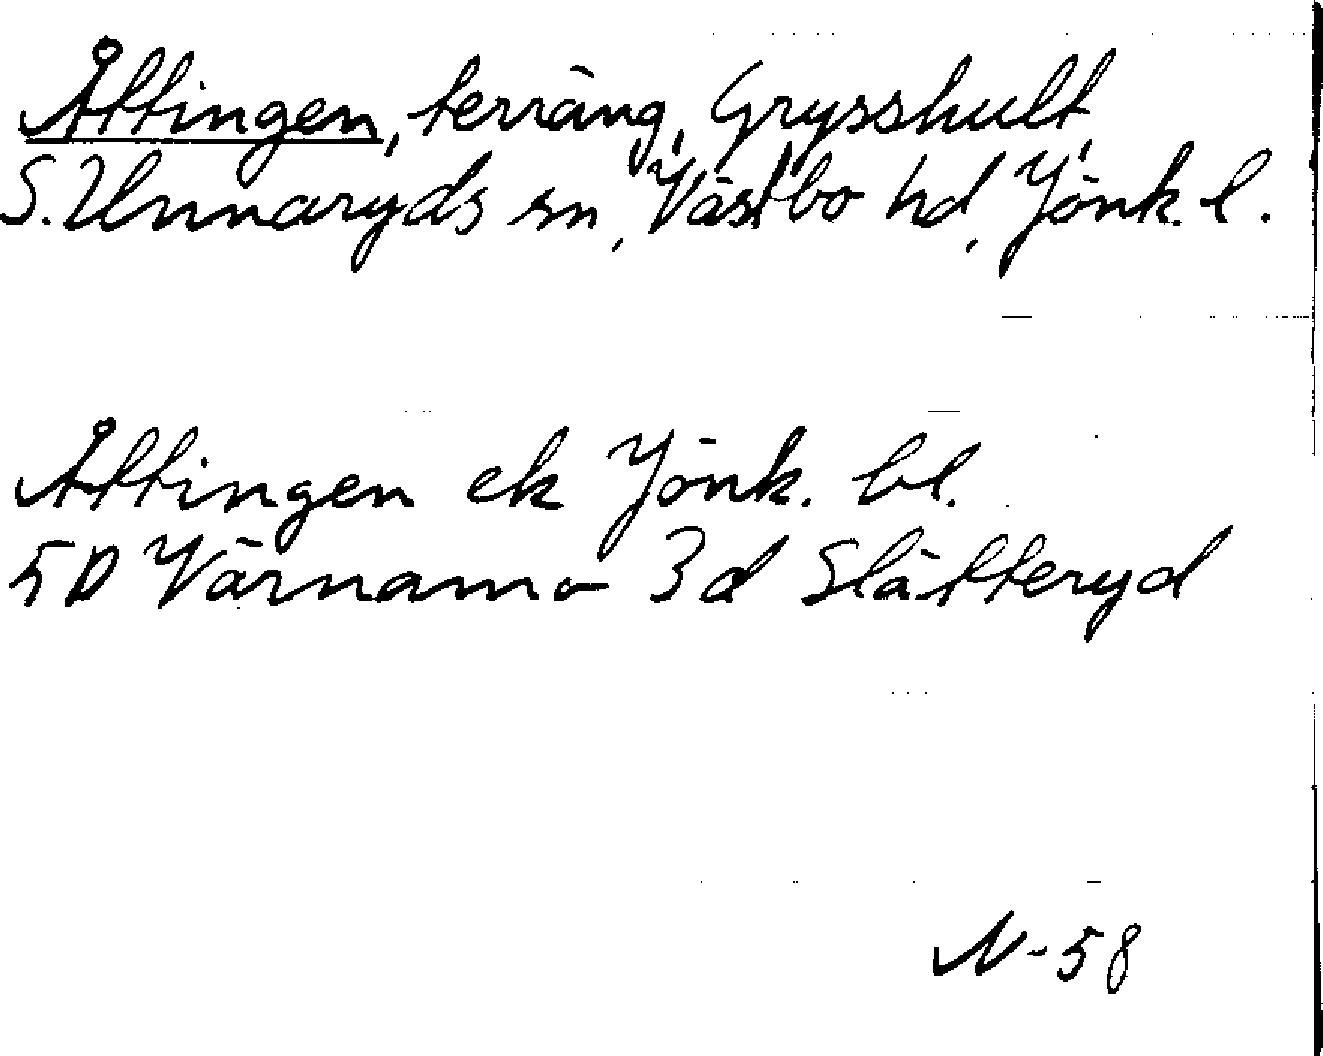 Åttingen, terräng, Grysshult,
S. Unnaryds sn, Västbo hd, Jönk. l.
Åttingen ek Jönk. bl.
5D Värnamo 3d Slätteryd
N-58